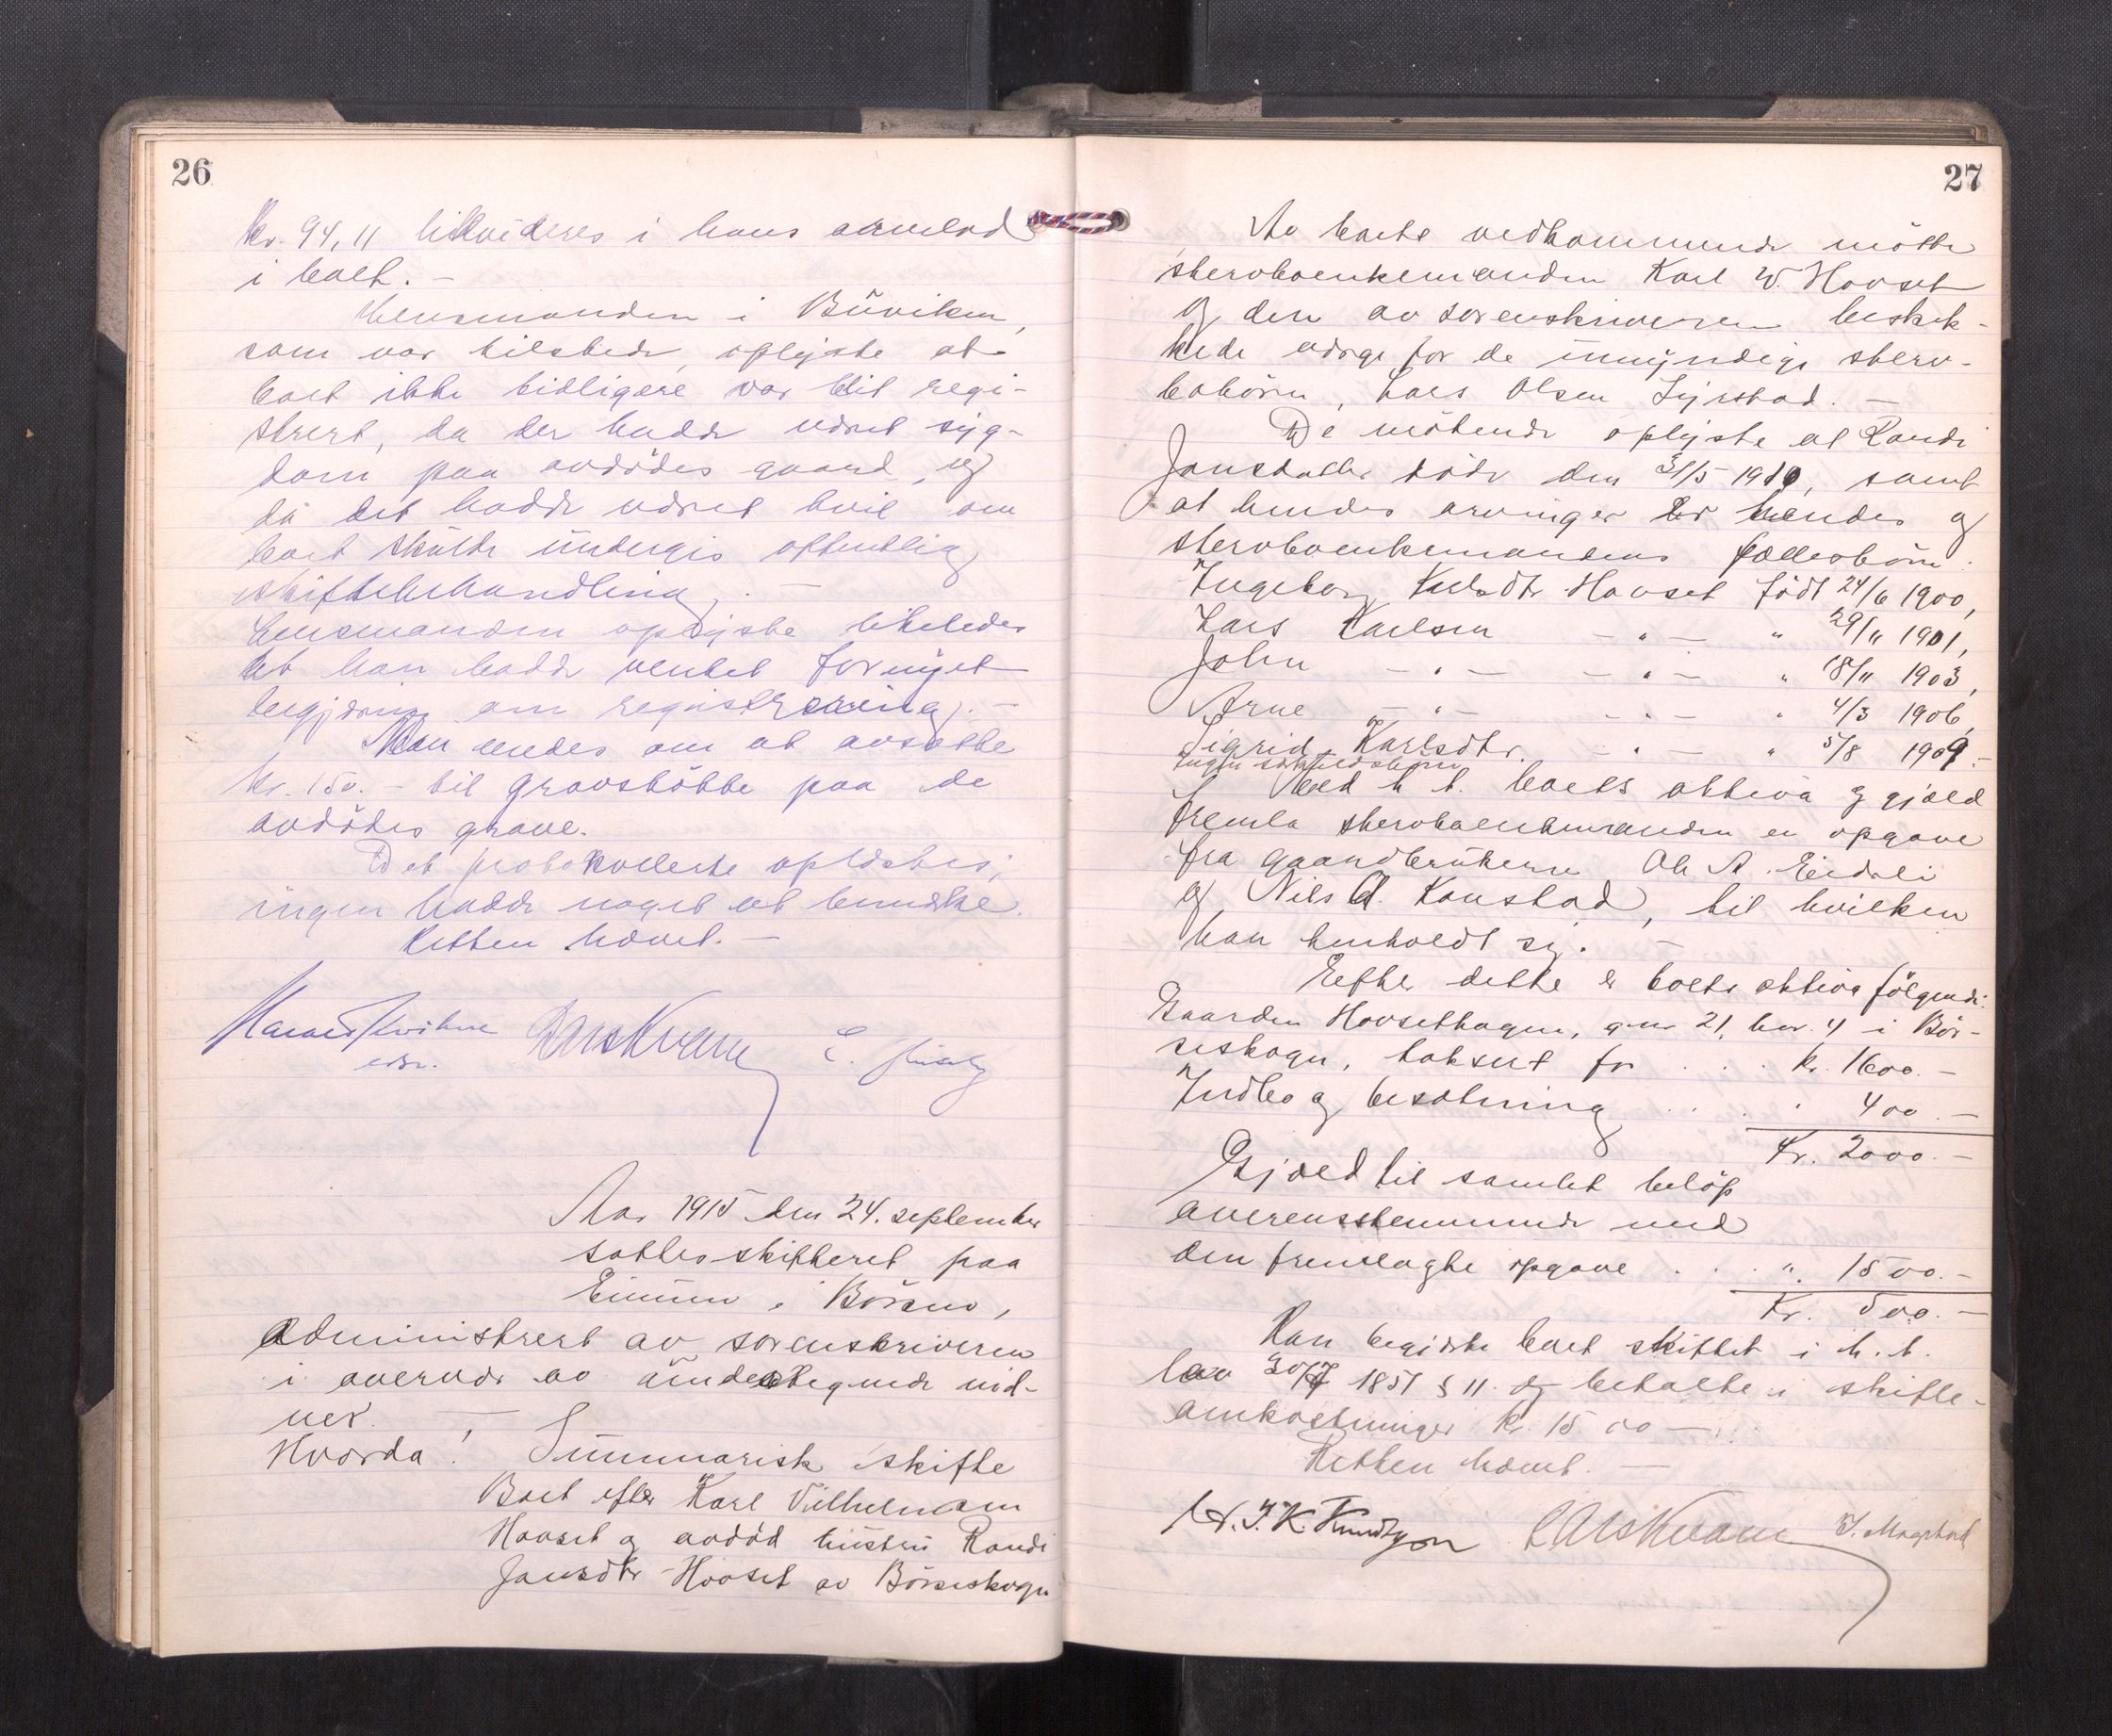 26
kr. 94,11 likvideres i hans arvelod
i boet. –
Lensmanden i Büviken,
som var tilstede, oplyste at
boet ikke tidligere var blit regi-
strert, da der hadde været syg-
dom paa avdödes gaard, og
da det hadde været tvil om
boet skulde undergis offentlig
skiftebehandling. –
Lensmanden oplyste likeledes
at han hadde ventet fornyet
begjæring om registrering. –
Man enedes om at avsætte
kr. 150.– til gravstötte paa de
avdödes grave.
Det protokollerte oplæstes;
ingen hadde noget at bemerke.
Retten hævet. –
Lars Kvam
Aar 1915 den 24. september
sattes skifteret paa
Eimün i Börsen,
administrert av sorenskriveren
i overvær av undertegnede vid-
ner. –
Hvorda! Summarisk skifte
Boet efter Karl Vilhelmsen
Hovset og avdöd hüstrü Randi
Jonsdtr Hovset av Börseskogn
27
Av boets vedkommende mötte
stervboenkemanden Karl W. Hovset
og den av sorenskriveren beskik-
kede værge for de ümyndige sterv-
bobörn, Lars Olsen Syrstad. –
De mötende oplyste at Randi
Jonsdatter döde den 31/5 1910, samt
at hendes arvinger er hendes og
stervboenkemandens fællesbörn:
Ingeborg Karlsdtr Hovset födt 24/6 1900,
Lars Karlsen – " – " 29/11 1901,
John – " – – " – " 18/11 1903,
Arne – " – – " – " 4/3 1906,
Sigrid Karlsdtr. – " – " 5/8 1909. –
Ingen særkuldsbörn
Med h. t. boets aktiva og gjæld
fremla stervboenkemanden en opgave
fra gaardbrukerne Ole A. Eidsli
og Nils A. Konstad, til hvilken
han henholdt sig. –
Efter dette er boets aktiva fölgende:
Gaarden Hovsethagen, gnr 21, bnr. 4 i Bör-
seskogn, taksert for . . . kr. 1600. –
Indbo og besætning . . . " 400. –
Kr. 2000. –
Gjæld til samlet belöp
overensstemmende med
den fremlagte opgave . . . " 1500. –
Kr. 500. –
Han begjærte boet skiftet i h. t.
lov 30/7 1851 § 11 og betalte i skifte-
omkostninger kr. 15 00 –
Retten hævet. –
Lars Kvam